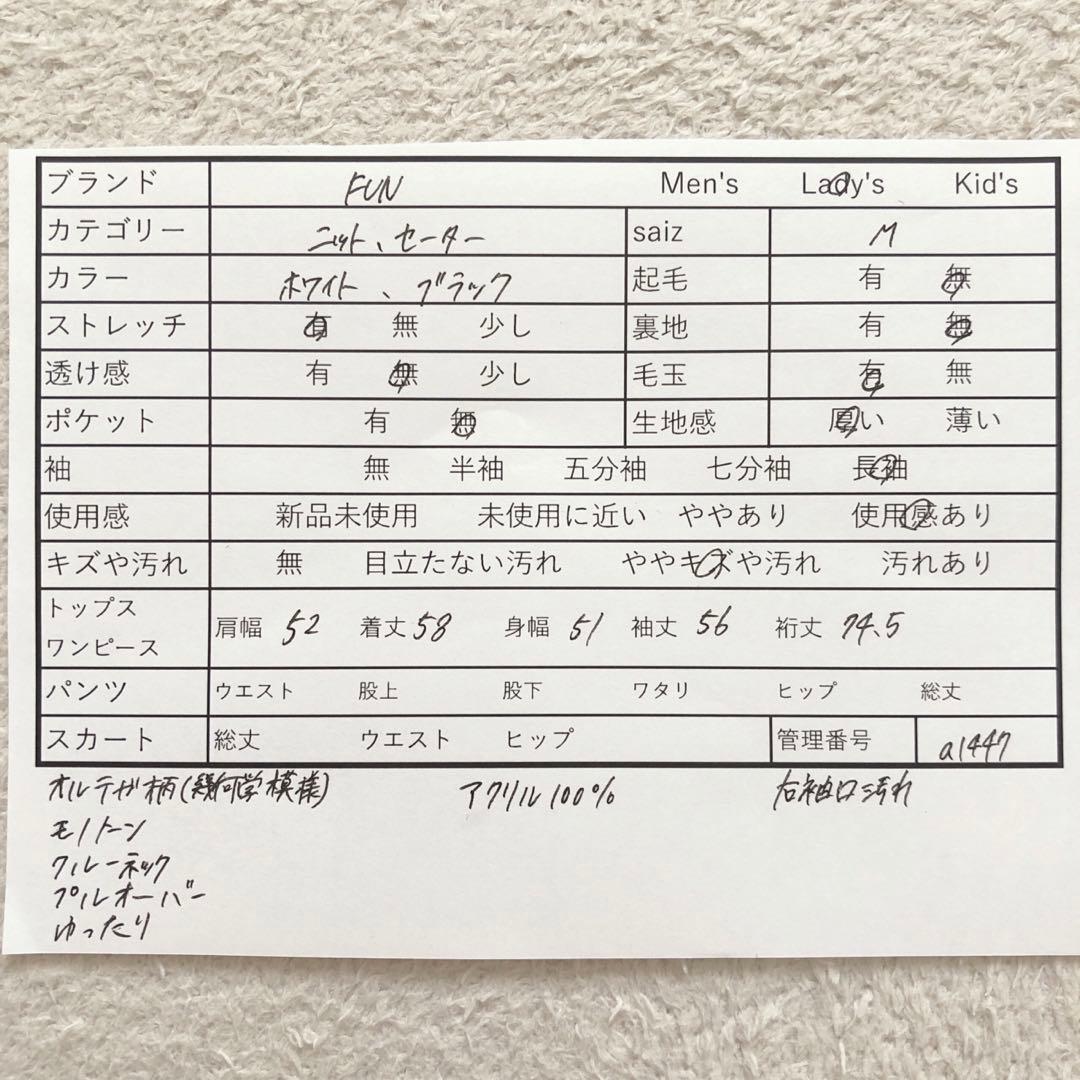 ブランド FUN Men's Lady's Kid's
カテゴリー ニット、セーター saiz M
カラー ホワイト、ブラック 起毛 有 無
ストレッチ 有 無 少し 裏地 有 無
透け感 有 無 少し 毛玉 有 無
ポケット 有 無 生地感 厚い 薄い
袖 無 半袖 五分袖 七分袖 長袖
使用感 新品未使用 未使用に近い ややあり 使用感あり
キズや汚れ 無 目立たない汚れ ややキズや汚れ 汚れあり
トップス
ワンピース
肩幅 52 着丈 58 身幅 51 袖丈 56 裄丈 74.5
パンツ ウエスト 股上 股下 ワタリ ヒップ 総丈
スカート 総丈 ウエスト ヒップ 管理番号 a1447
オルテガ柄(幾何学模様) アクリル100% 右袖口汚れ
モノトーン
クルーネック
プルオーバー
ゆったり